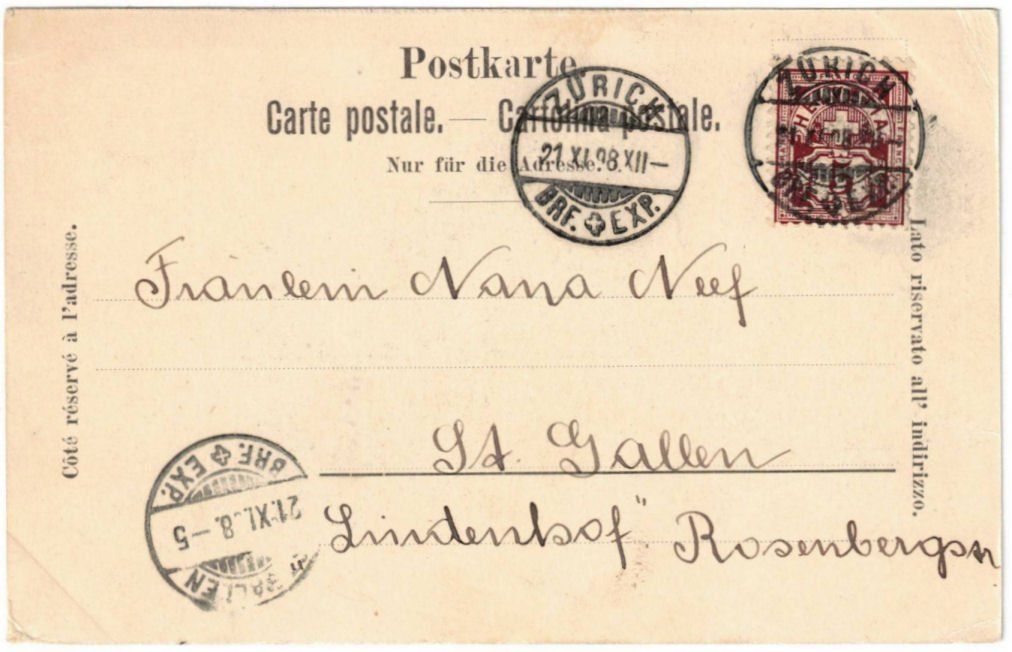 Postkarte.
Carte postale. — Cartolina postale.
Nur für die Adresse.
ZÜRICH
21.XI.98.XII–
BRF. EXP.
ZÜRICH
BRF. EXP.
HELVETIA
5
Côté réservé à l'adresse.
Lato riservato all' indirizzo.
Fräulein Nana Neef
St. Gallen
„Lindenhof" Rosenbergstr
GALLEN
21.XI.98.–5
BRF. EXP.